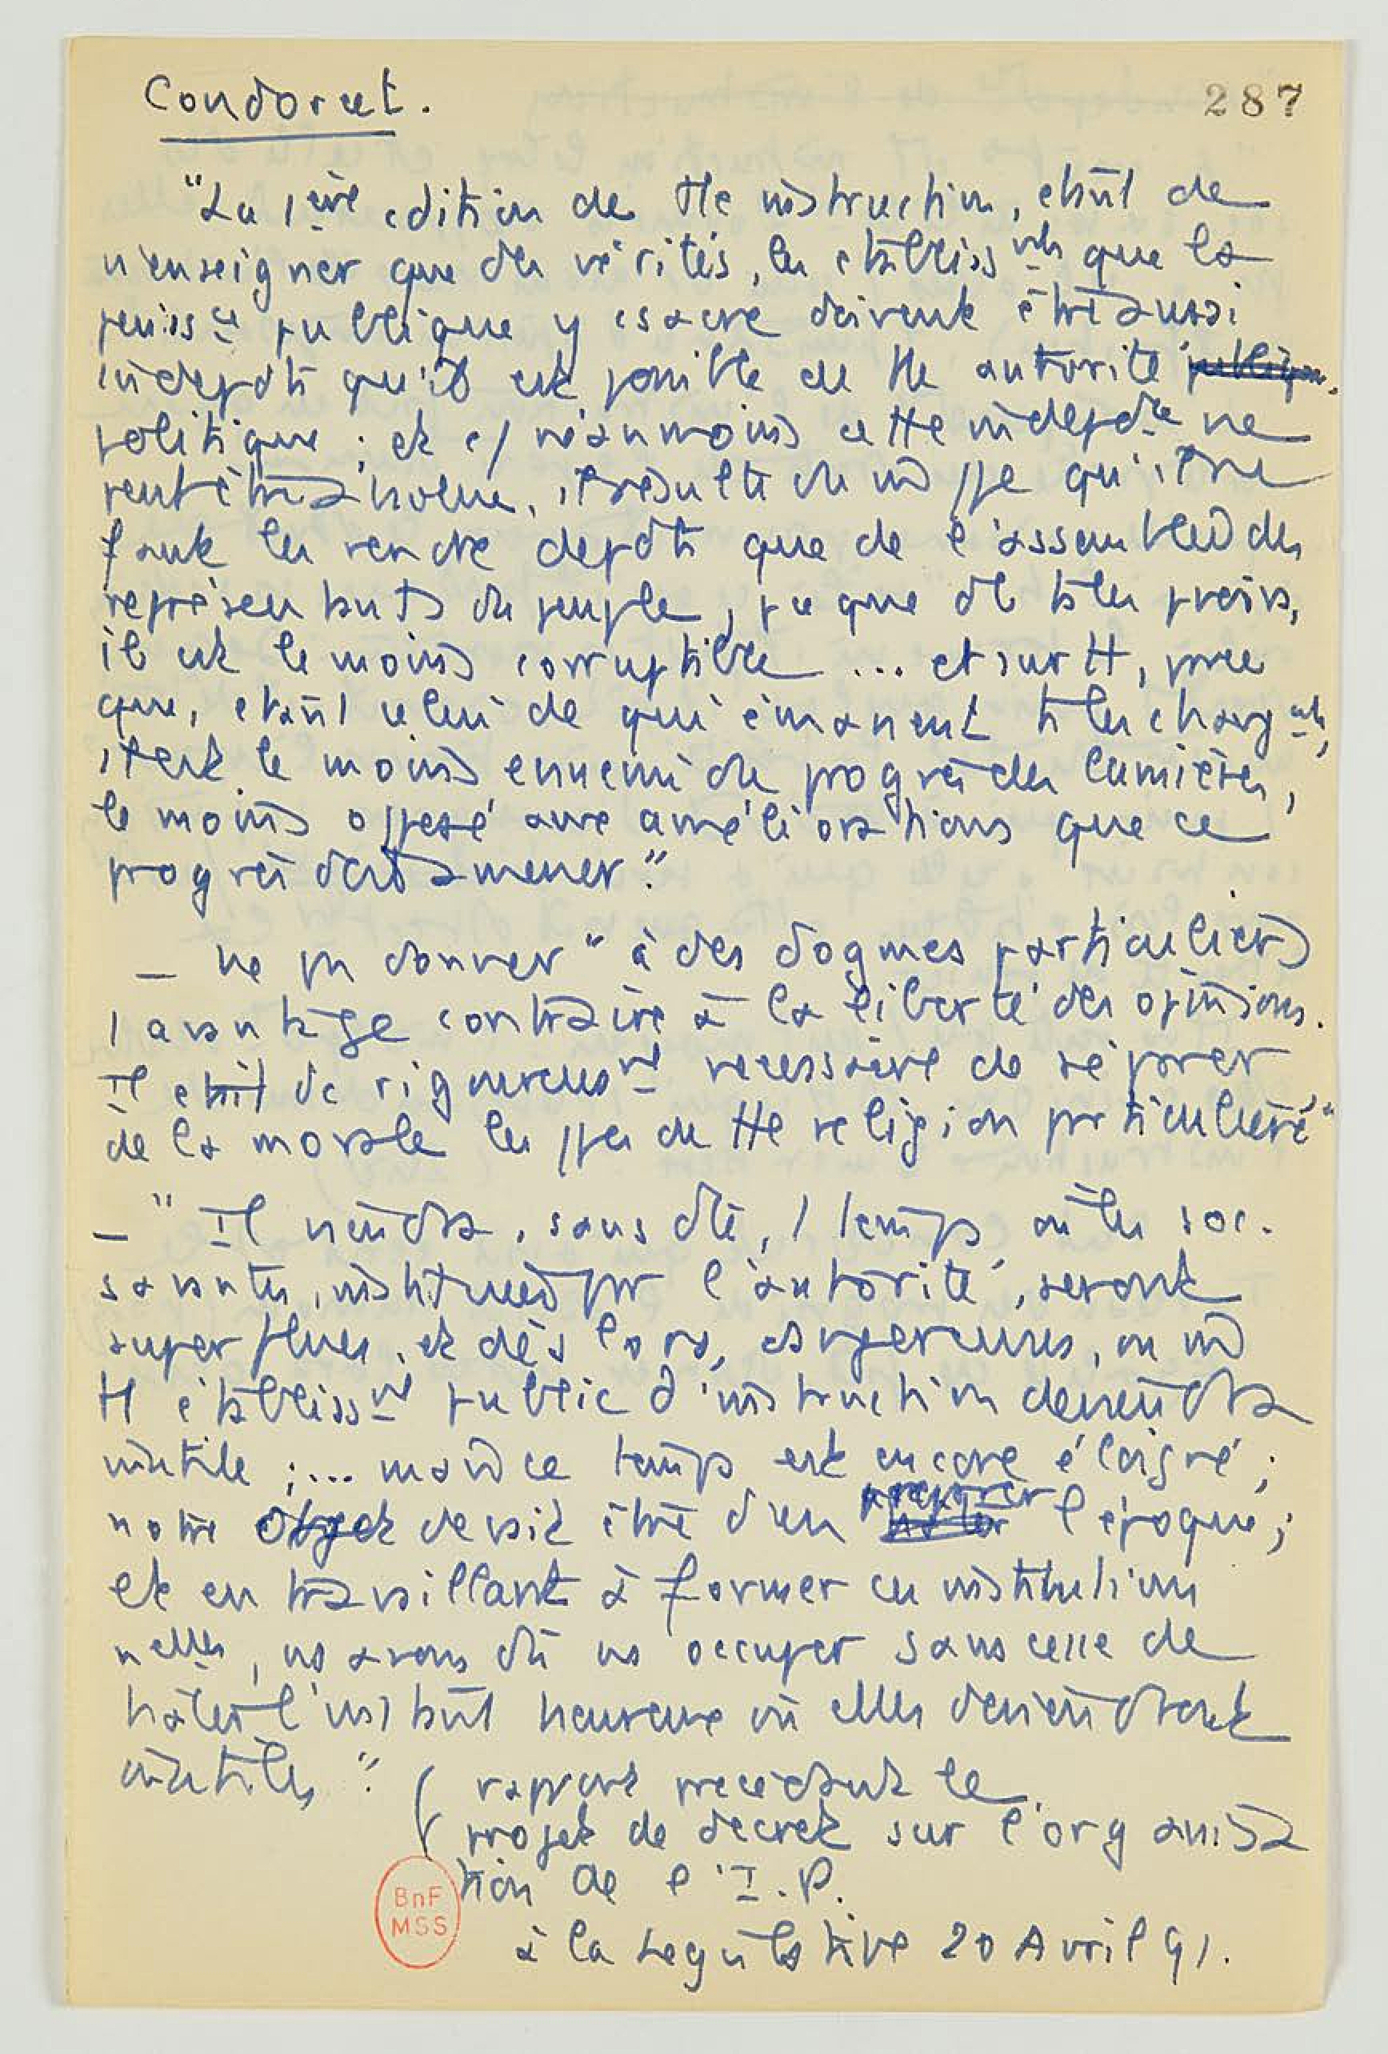 Condorcet.
287
"La 1ère condition de tte instruction, étant de
n'enseigner que des vérités, les établissmts que la
puissce publique y consacre doivent être aussi
indepdts qu'il est possible de tte autorité publique,
politique ; et c/ néanmoins cette indepdce ne
peut être absolue, il résulte du m ppe qu'il ne
faut les rendre depdts que de l'assemblée des
représentants du peuple, pce que de ts les pouvoirs,
il est le moins corruptible ... et surtt, parce
que, étant celui de qui émanent ts les changmts,
il est le moins ennemi du progrès des lumières,
le moins opposé aux améliorations que ce
progrès doit amener."
_ ne pas donner "à des dogmes particuliers
1 avantage contraire à la liberté des opinions.
Il était de rigoureusmt nécessaire de séparer
de la morale les ppes de tte religion particulière"
_ "Il viendra, sans dte, 1 temps où les soc.
savantes, instituées par l'autorité, seront
superflues, et dès lors, dangereuses, où m
tt établissmt public d'instruction deviendra
inutile ; ... mais ce temps est encore éloigné ;
notre objet devait être d'en préparer l'époque ;
et en travaillant à former ces institutions
nelles, ns avons dû ns occuper sans cesse de
hâter l'instant heureux où elles deviendront
inutiles."
( rapport précédant le
projet de décret sur l'organisa
tion de l'I.P.
à la Législative 20 Avril 91.
BnF
MSS